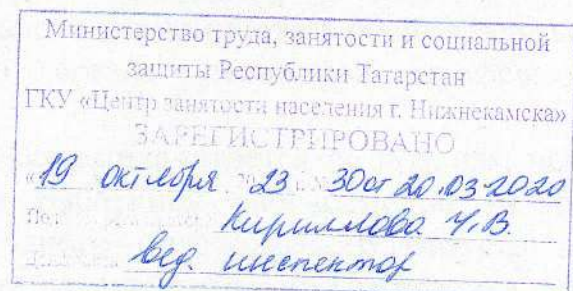 Министерство труда, занятости и социальной
защиты Республики Татарстан
ГКУ «Центр занятости населения г. Нижнекамска»
ЗАРЕГИСТРИРОВАНО
«19 октября 2023 30 от 20.03.2020
Кириллова Ч.В.
вед. инспектор